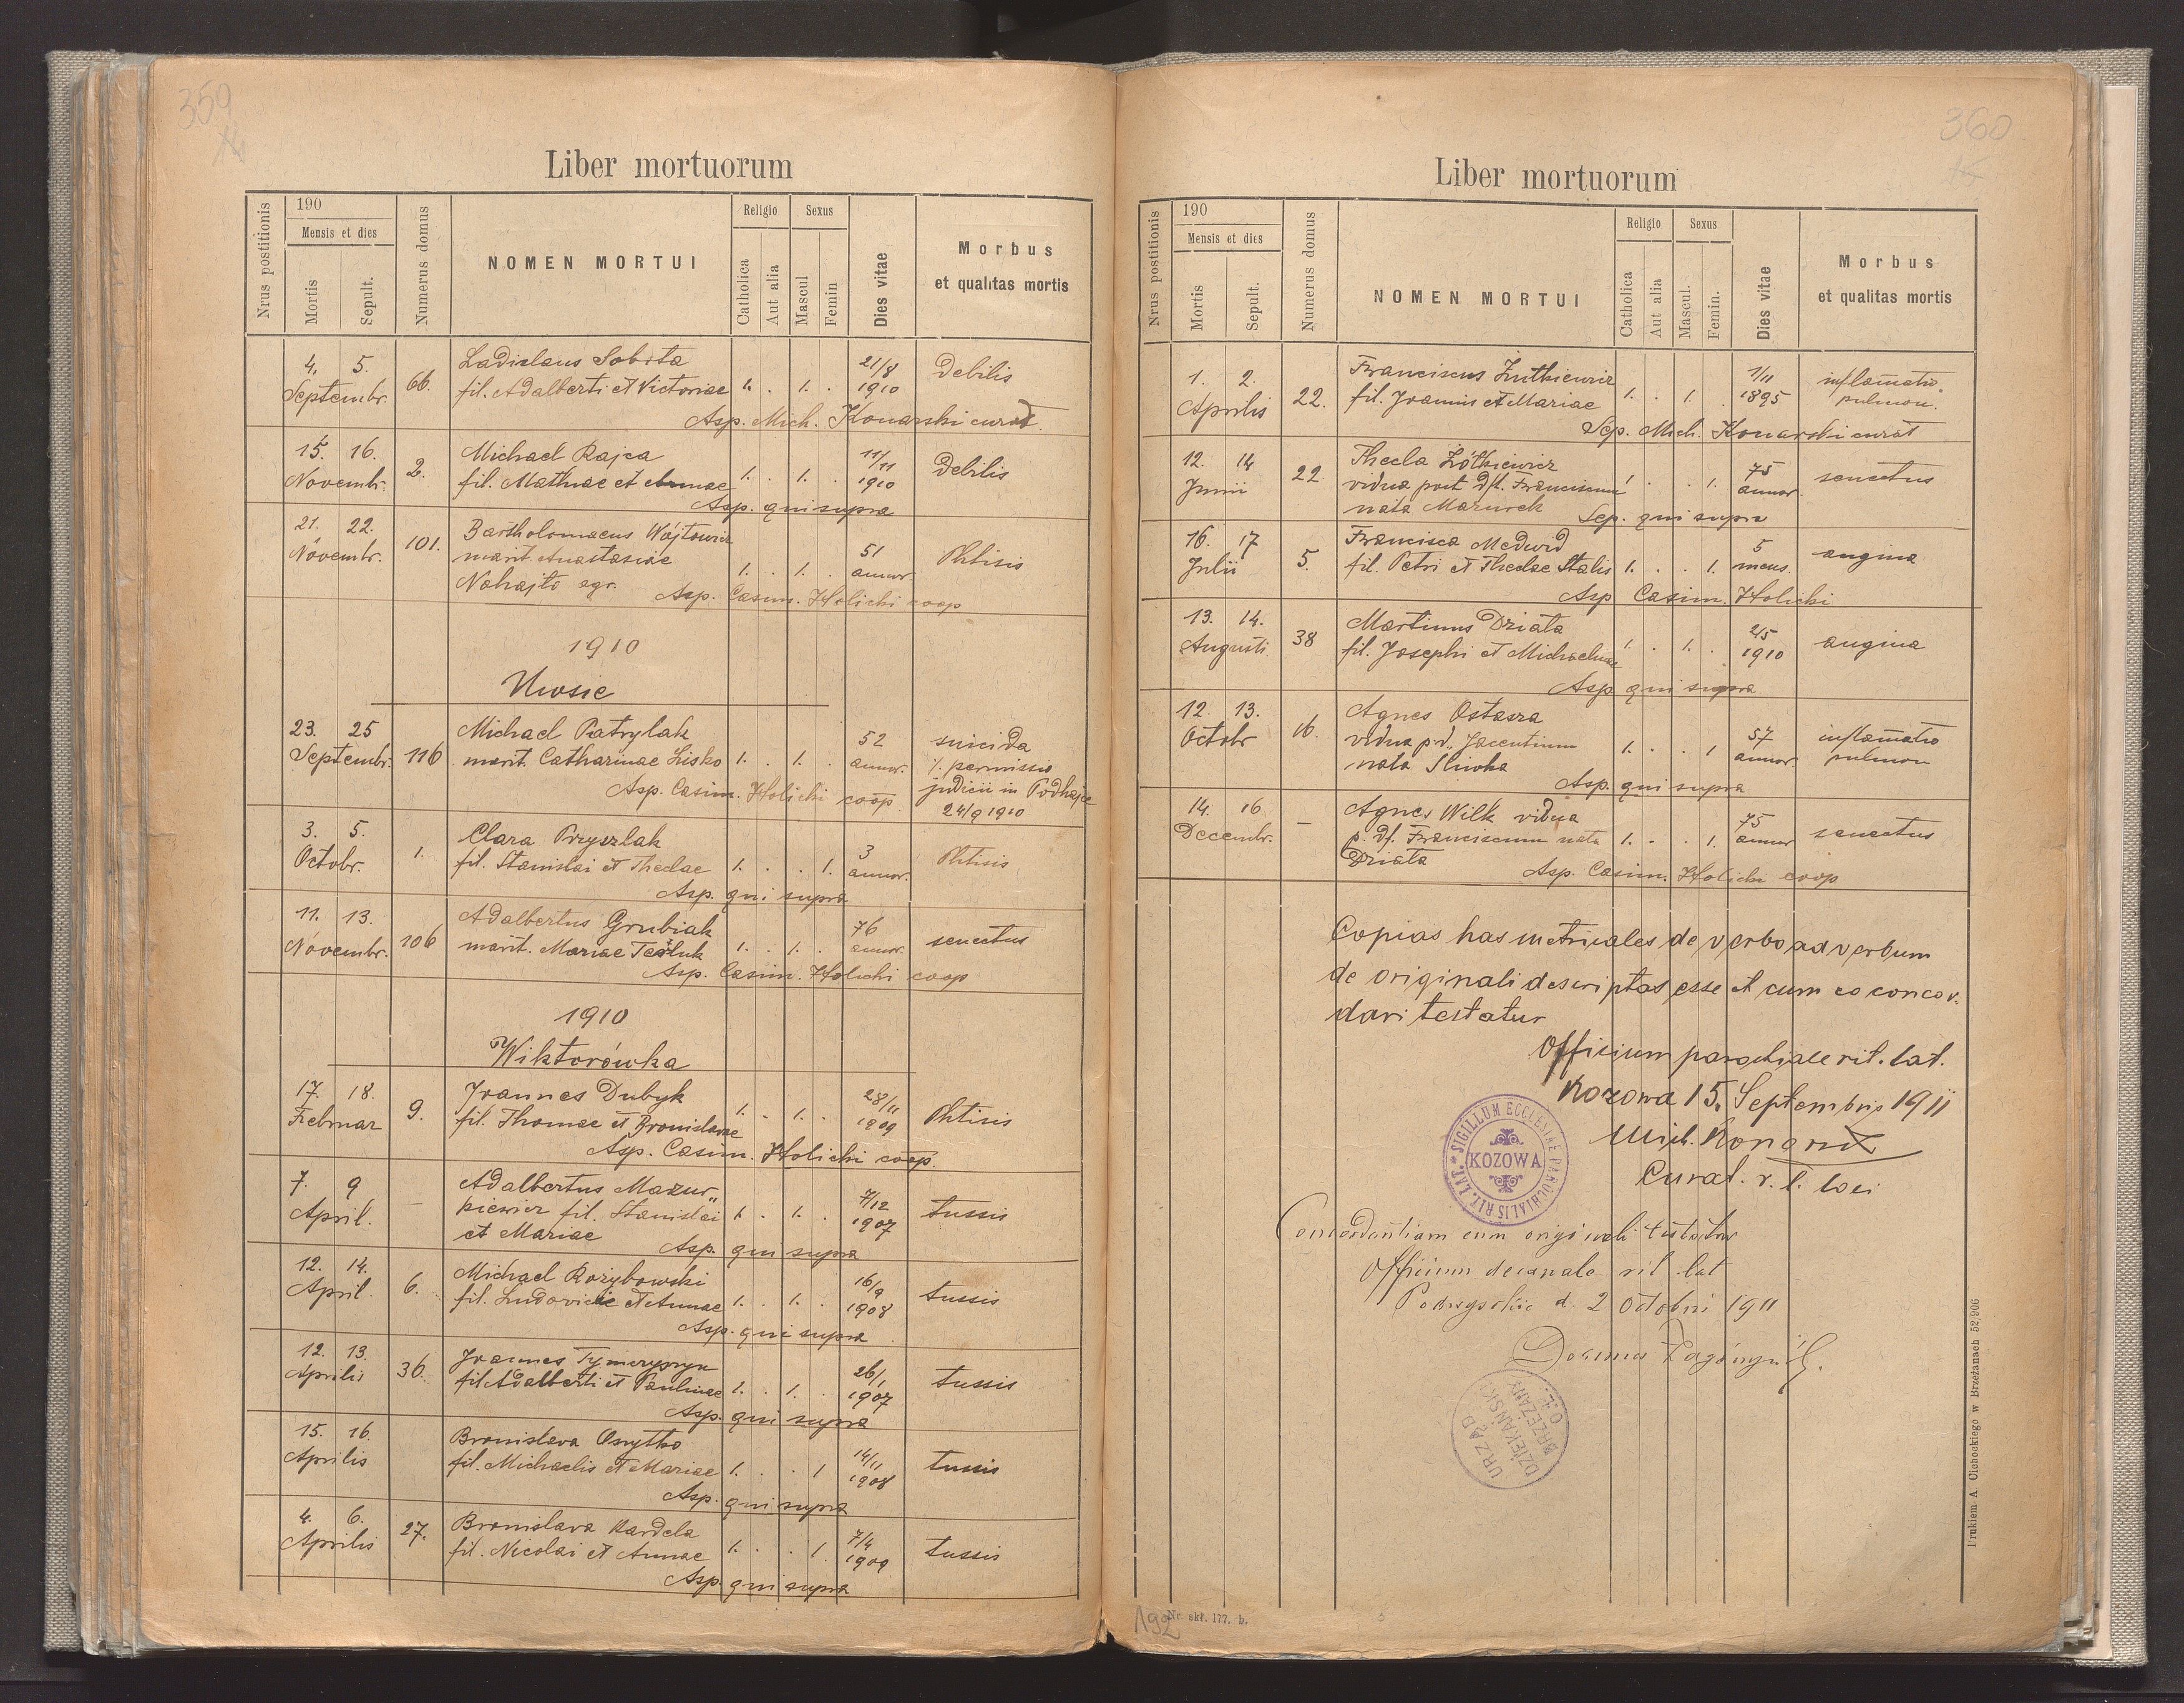 359
Liber mortuorum
Nrus postitionis
190
Mensis et dies
Mortis
Sepult.
Numerus domus
NOMEN MORTUI
Religio
Catholica
Aut alia
Sexus
Mascul
Femin
Dies vitae
Morbus
et qualitas mortis
4. 5. Ladislaus Sobota 21/8 Debilis
Septembr. 66. fil. Adalberti et Victoriae 1. . 1. . 1910
Asp. Mich. Konarski curat.
15. 16. Michael Rajca 11/11 Debilis
Novembr. 2. fil. Mathiae et Annae 1. . 1. . 1910
Asp. qui supra
21. 22. Bartholomaeus Wójtowicz
Novembr. 101. marit. Anastasiae 1. . 1. . 51 Phtisis
Nahajło agr. annor.
Asp. Casim. Holicki coop
1910
Uwsie
23. 25 Michael Patrylak 52 suicida
Septembr. 116 marit. Catharinae Lisko 1. . 1. . annor. /. permissio
Asp. Casim. Holicki coop. judicii in Podhajce
24/9 1910
3. 5. Clara Przyszlak 3
Octobr. 1. fil. Stanislai et Theclae 1. . . 1. annor. Phtisis
Asp. qui supra
11. 13. Adalbertus Grubiak 76
Novembr. 106 marit. Mariae Tesluk 1. . 1. . annor. senectus
Asp. Casim. Holicki coop
1910
Wiktorówka
17. 18. Joannes Dubyk 28/11
Februar 9. fil. Thomae et Bronislavae 1. . 1. . 1909 Phtisis
Asp. Casim. Holicki coop.
7. 9 Adalbertus Mazur„ 7/12
April. – kiewicz fil. Stanislai 1. . 1. . 1907 tussis
et Mariae
Asp. qui supra
12. 14. Michael Rozybowski 16/9
April. 6. fil. Ludovici et Annae 1. . 1. . 1908 tussis
Asp. qui supra
12. 13. Joannes 26/1
Aprilis 36. fil Adalberti et Paulinae 1. . 1. . 1907 tussis
Asp. qui supra
15. 16. Bronislava 14/11
Aprilis fil. Michaelis et Mariae 1. . . 1 1908 tussis
Asp. qui supra
4. 6. Bronislava Kardela 7/4
Aprilis 27. fil. Nicolai et Annae 1. . . 1. 1909 tussis
Asp. qui supra
360
Liber mortuorum
Nrus postitionis
190
Mensis et dies
Mortis
Sepult.
Numerus domus
NOMEN MORTUI
Religio
Catholica
Aut alia
Sexus
Mascul.
Femin.
Dies vitae
Morbus
et qualitas mortis
1. 2. Franciscus Żutkiewicz 1/11 inflamatio
Aprilis 22. fil. Joannis et Mariae 1. . 1. . 1895 pulmon.
Sep. Mich. Konarski curat
12. 14 Thecla Żółkiewicz 75
Junii 22 vidua post df. Franciscum 1 . . 1. annor. senectus
nata Mazurek
Sep. qui supra
16. 17 Francisca Medwid 5
Julii 5. fil. Petri et Theclae Stalis 1. . . 1. mens. angina
Asp Casim. Holicki
13. 14. Martinus Dziata 2/5
Augusti 38 fil. Josephi et Michaelinae 1. . 1. . 1910 angina
Asp qui supra
12. 13. Agnes Ostasza 57 inflamatio
Octobr 16. vidua p.d. Jacentium 1. . . 1 annor. pulmon
nata Sliwka
Asp. qui supra
14. 16. Agnes Wilk vidua 75
Decembr. – p. df. Franciscum nata 1. . . 1. annor senectus
Dziata
Asp. Casim. Holicki coop
Copias has metricales de verbo ad verbum
de originali descriptas esse et cum eo concor-
dari testatur
Officium parochiale rit. lat.
Kozowa 15. Septembris 1911
Mich. Konarski
Curat. r. l. loci
SIGILLUM ECCLESIAE PAROCHIALIS RIT. LAT.
KOZOWA
Concordantiam cum originali testatur
Officium decanale rit lat
d. 2 Octobri 1911
URZĄD
DZIEKAŃSKI
BRZEŻANY
O. Ł.
Drukiem A Cichockiego w Brzeżanach 52/906
Nr. skł. 177. b.
192